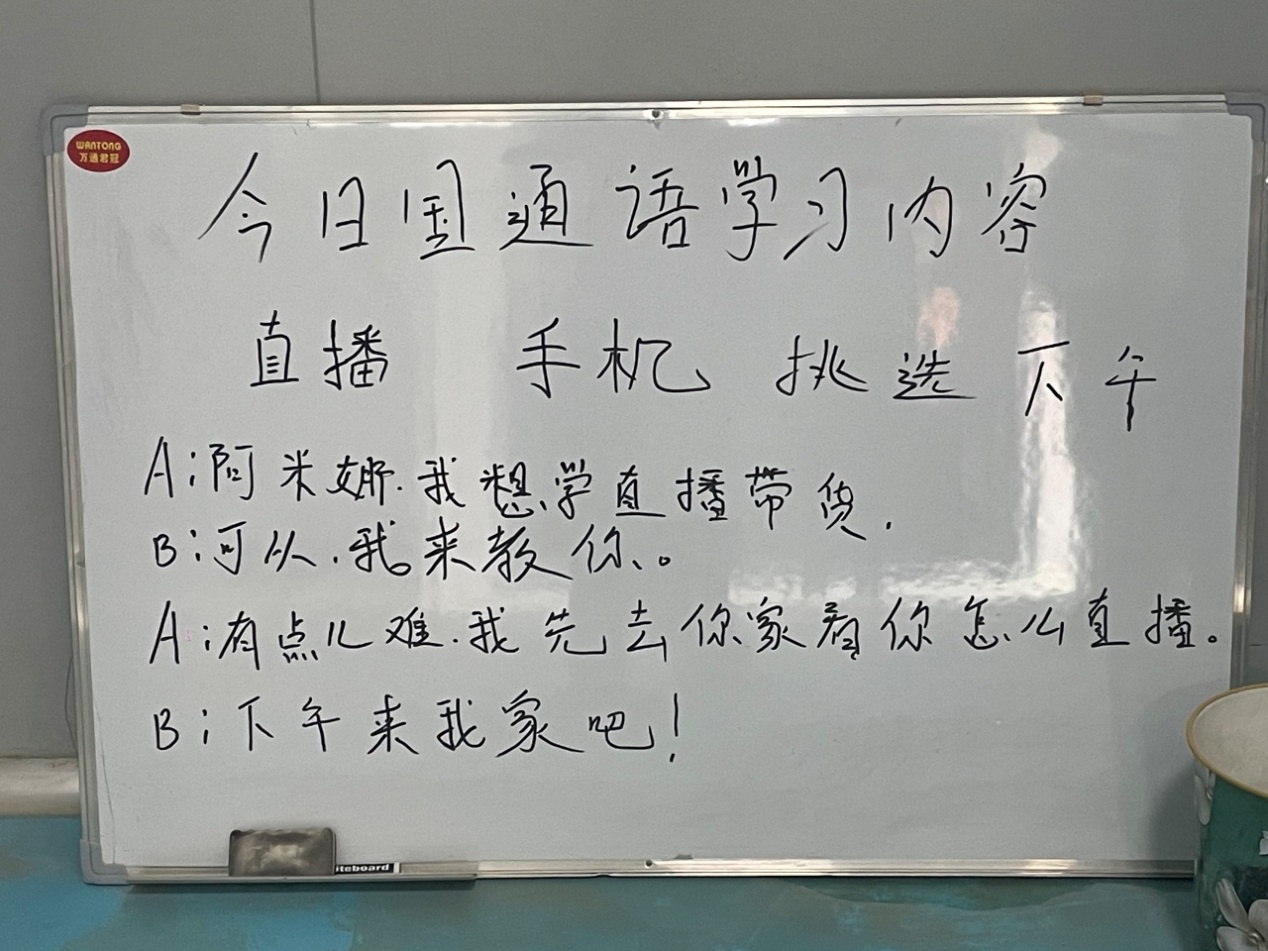 WANTONG
万通君冠
今日国通语学习内容
直播 手机 挑选 下午
A:阿米娜.我想学直播带货.
B:可以.我来教你。
A:有点儿难.我先去你家看你怎么直播。
B:下午来我家吧!
iteboard